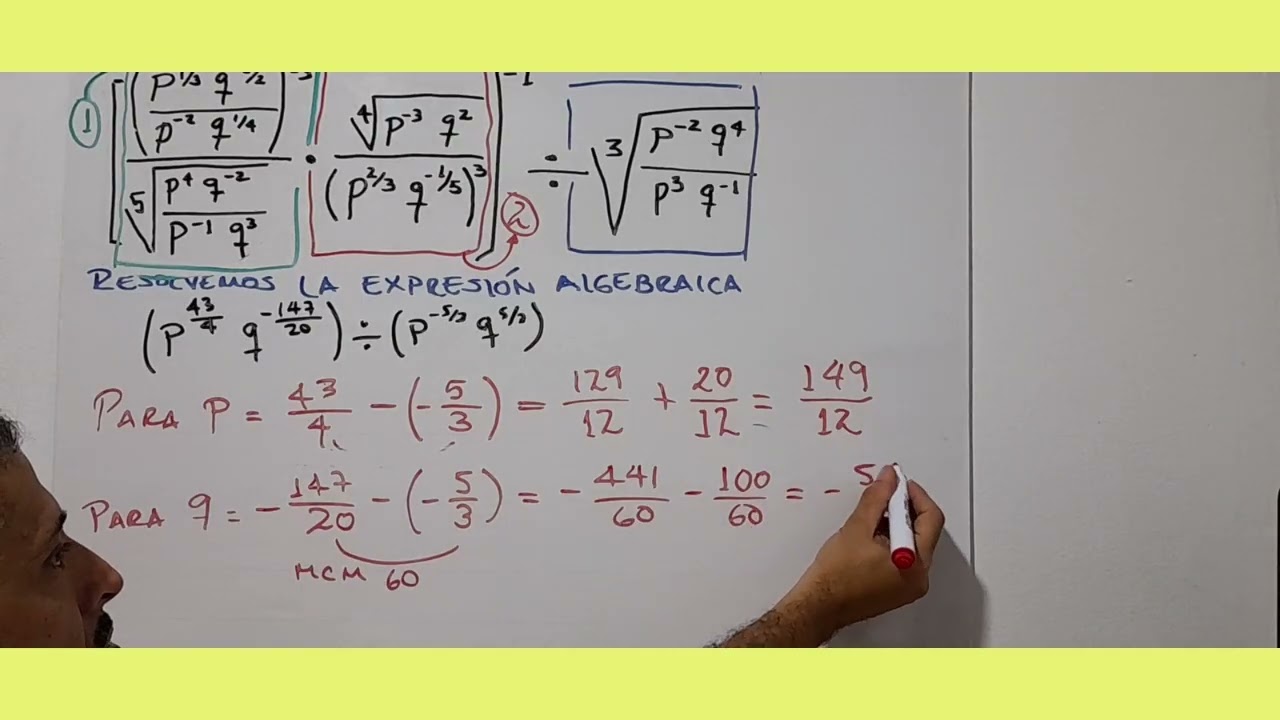 1 [ (p^1/3 q^-1/2 / p^-2 q^1/4)^-3 / ⁵√(p^4 q^-2 / p^-1 q^3) · ⁴√(p^-3 q^2) / (p^2/3 q^-1/5)^3 ]^-1 2 ÷ ³√(p^-2 q^4 / p^3 q^-1)
RESOLVEMOS LA EXPRESIÓN ALGEBRAICA
(p^43/4 q^-147/20) ÷ (p^-5/3 q^5/3)
PARA P = 43/4 - (-5/3) = 129/12 + 20/12 = 149/12
PARA q = - 147/20 - (-5/3) = - 441/60 - 100/60 = - 5
MCM 60